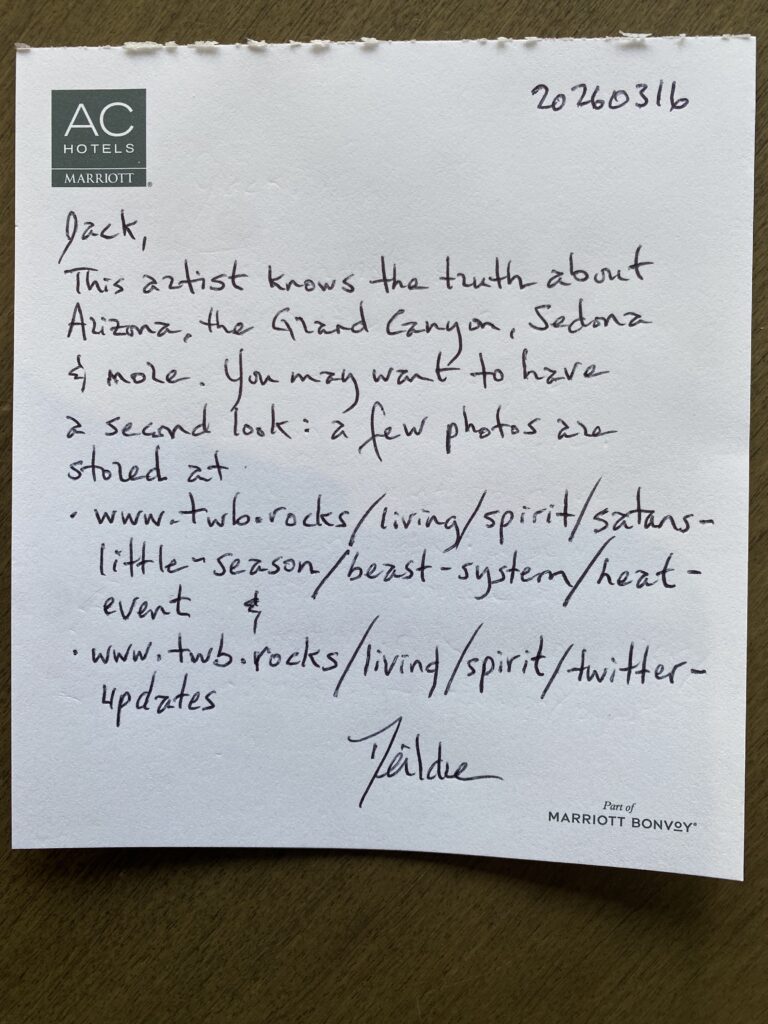 AC
HOTELS
MARRIOTT®
20260316
Jack,
This artist knows the truth about
Arizona, the Grand Canyon, Sedona
& more. You may want to have
a second look: a few photos are
stored at
• www.twb.rocks/living/spirit/satans-
little-season/beast-system/heat-
event &
• www.twb.rocks/living/spirit/twitter-
updates
Deirdre
Part of
MARRIOTT BONVOY®